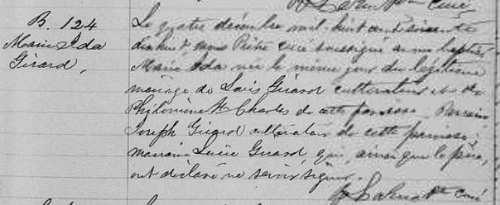 B. 124
Marie Ida
Girard,
Le quatre décembre mil huit cent soixante
dix huit Nous Prêtre curé soussigné avons baptisé
Marie Ida née le même jour du légitime
mariage de Louis Girard cultivateur et de
Philomène St Charles de cette paroisse. Parrain
Joseph cultivateur de cette paroisse;
marraine Lucie Girard, qui, ainsi que le père,
ont déclaré ne savoir signer.
Ptre curé